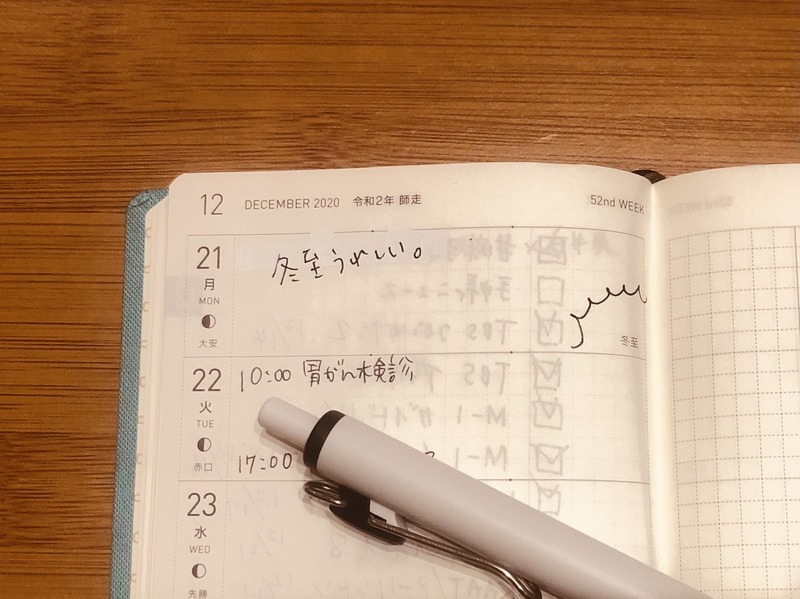 12 DECEMBER 2020 令和2年 師走 52nd WEEK
21
月
MON
大安
冬至うれしい。
冬至
22
火
TUE
赤口
10:00 胃がん検診
17:00
23
水
WED
先勝